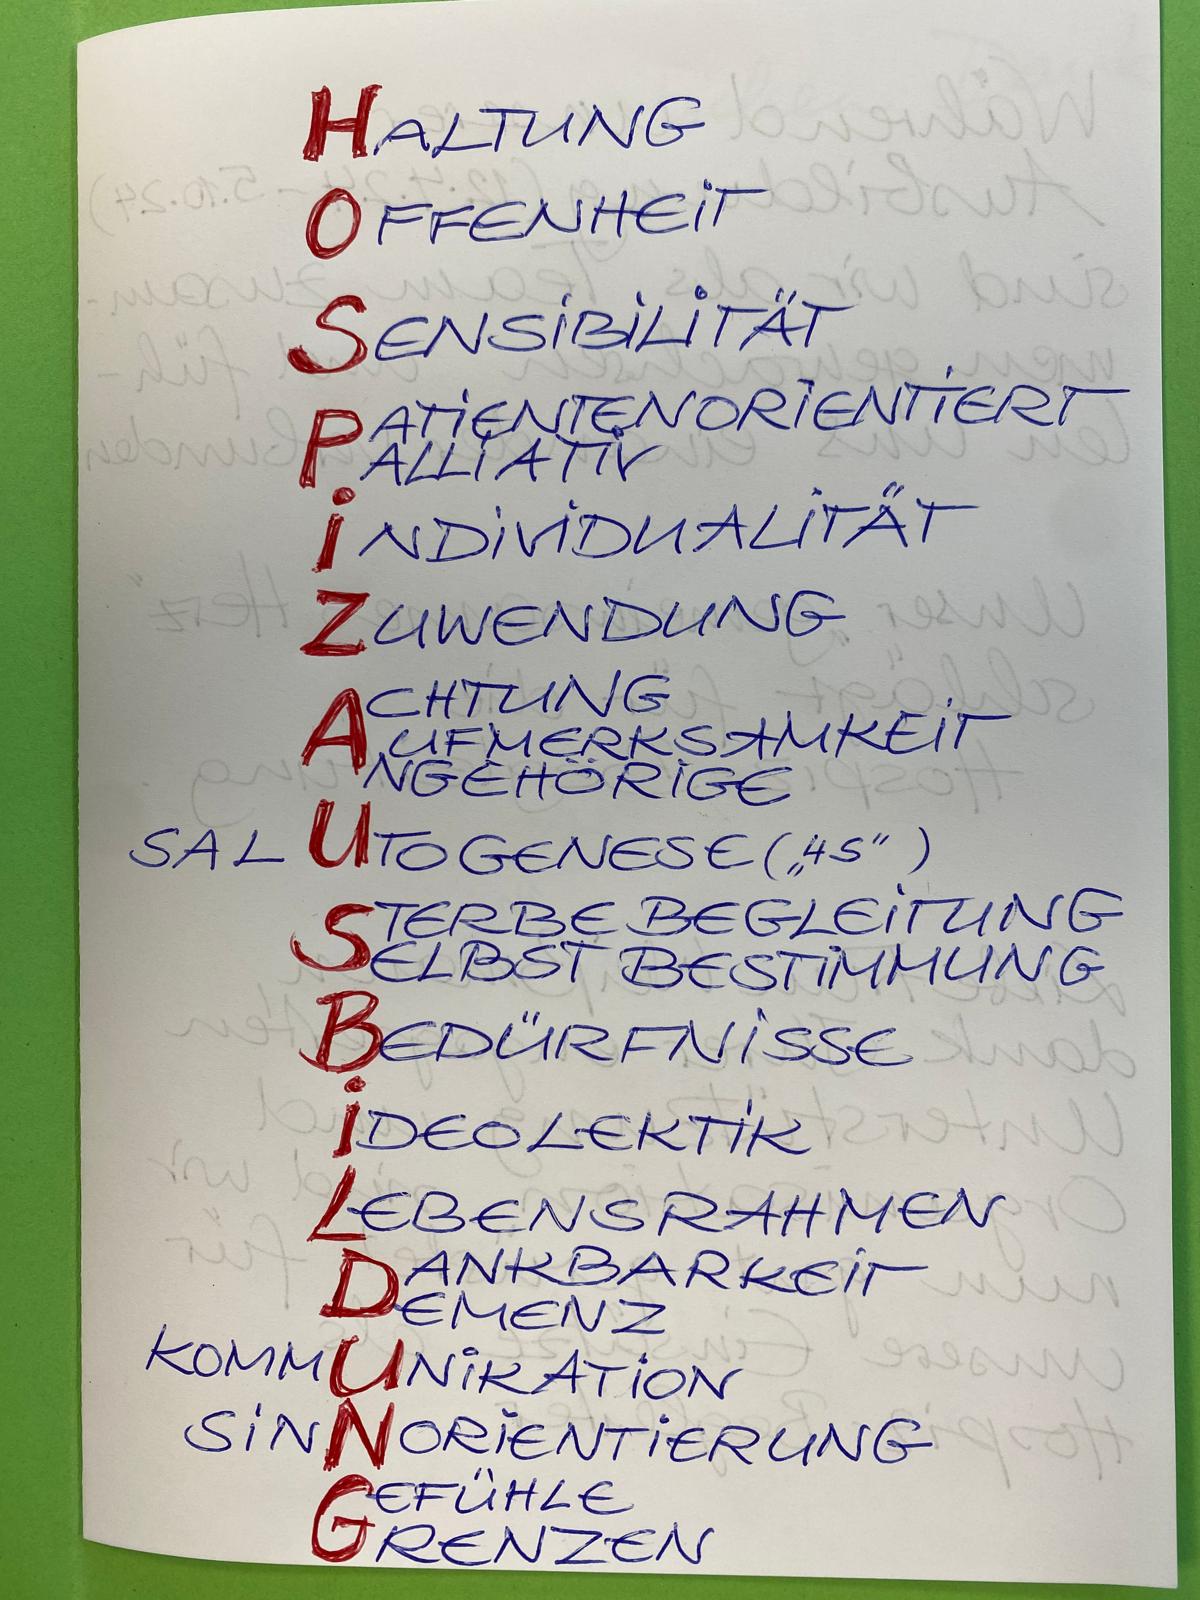 HALTUNG
OFFENHEIT
SENSIBILITÄT
PATIENTENORIENTIERT
PALLIATIV
INDIVIDUALITÄT
ZUWENDUNG
ACHTUNG
AUFMERKSAMKEIT
ANGEHÖRIGE
SALUTOGENESE („4S“)
STERBEBEGLEITUNG
SELBSTBESTIMMUNG
BEDÜRFNISSE
IDEOLEKTIK
LEBENSRAHMEN
DANKBARKEIT
DEMENZ
KOMMUNIKATION
SINNORIENTIERUNG
GEFÜHLE
GRENZEN